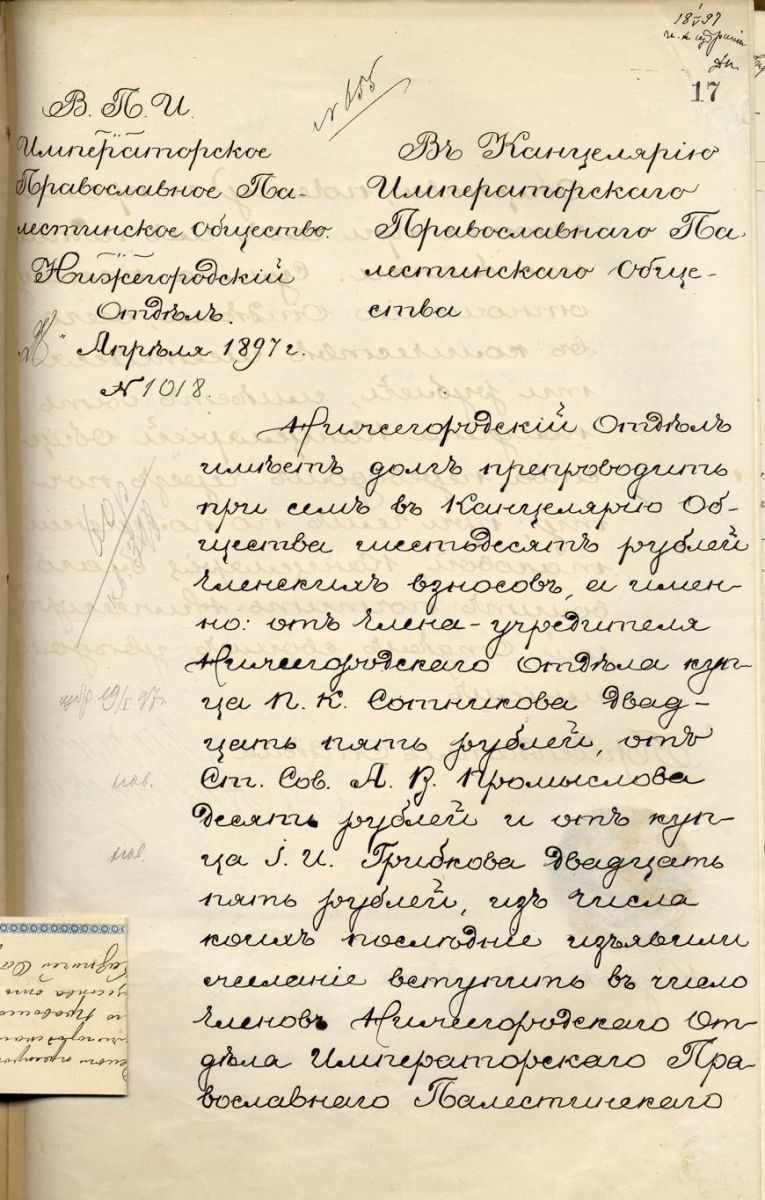 18 97
17
В. П. И.
Императорское
Православное Па-
лестинское Общество.
Нижегородскій
Отдѣлъ.
Апрѣля 1897 г.
№ 1018.
Въ Канцелярію
Императорскаго
Православнаго Па-
лестинскаго Обще-
ства
Нижегородскій Отдѣлъ
имѣетъ долгъ препроводить
при семъ въ Канцелярію Об-
щества шестьдесятъ рублей
членскихъ взносовъ, а имен-
но: отъ члена-учредителя
Нижегородскаго Отдѣла куп-
ца П. К. Сотникова двад-
цать пять рублей, отъ
Ст. Сов. А. В. Промыслова
десять рублей и отъ куп-
ца І. И. Грибкова двадцать
пять рублей, изъ числа
коихъ послѣдніе изъявили
желаніе вступить въ число
членовъ Нижегородскаго От-
дѣла Императорскаго Пра-
вославнаго Палестинскаго
нов.
нов.